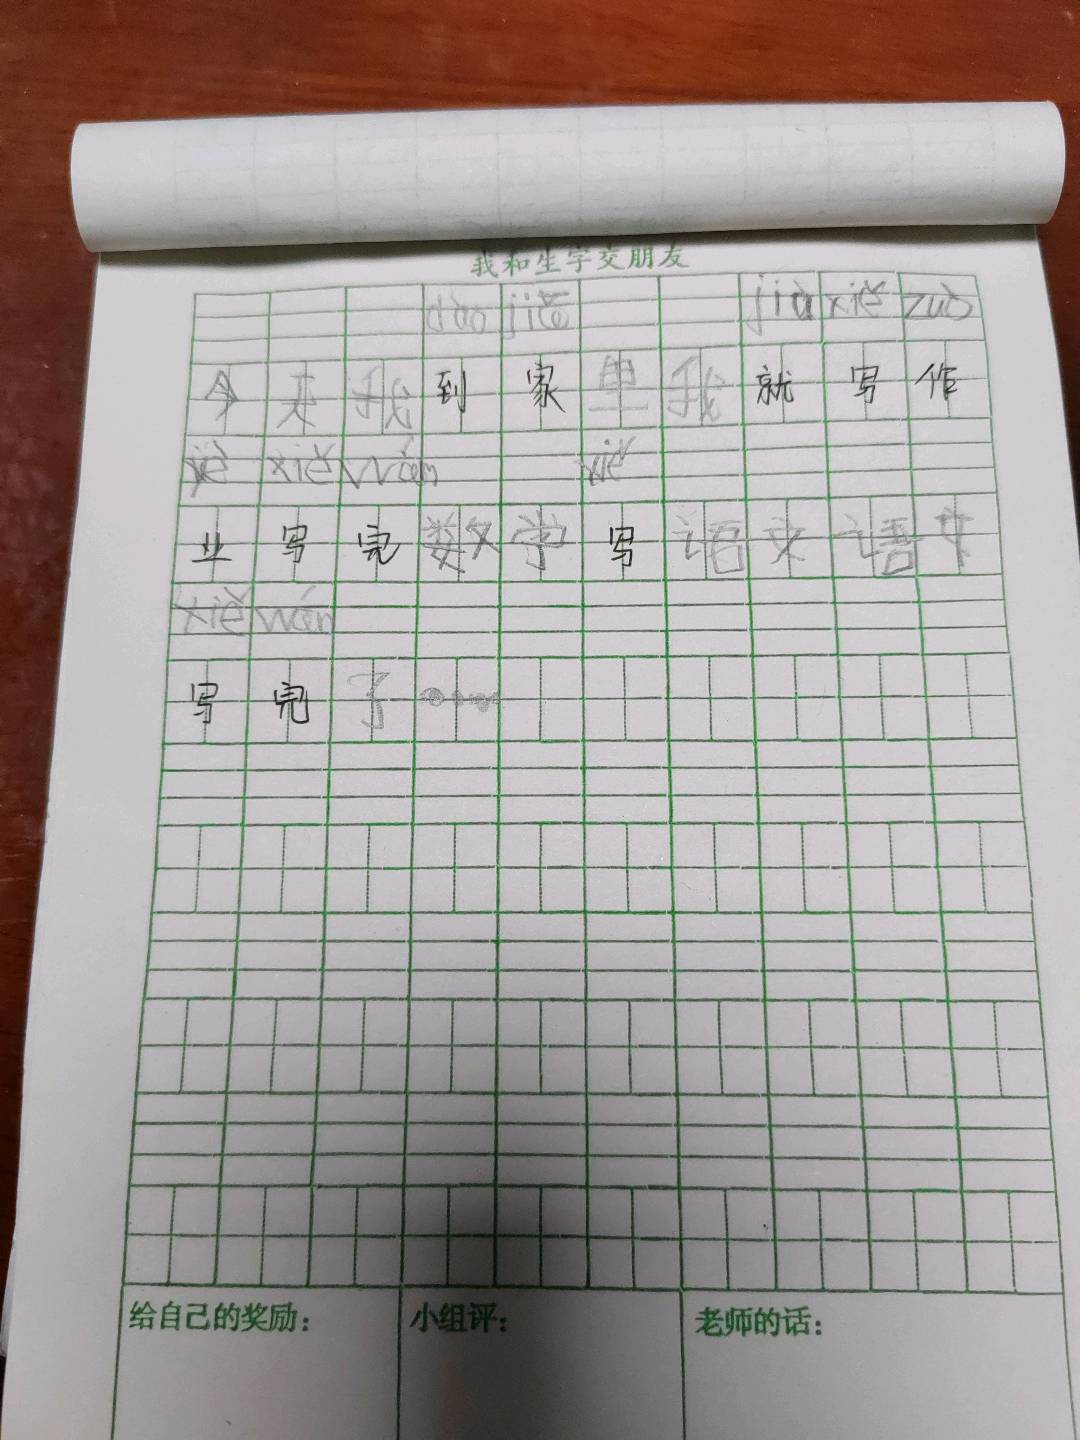 我和生字交朋友
dào jiē jiù xiě zuò
今来我到家里我就写作
yè xiě wán xiě
业写完数学写语文语文
xiě wán
写完了
给自己的奖励： 小组评： 老师的话：